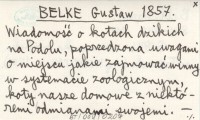 BELKE Gustaw 1857.
Wiadomość o kotach dzikich
na Podolu, poprzedzona uwagami
o miejscu jakie zajmować winny
w systemacie zoologicznym,
koty nasze domowe z niektó-
remi odmianami swojemi. —